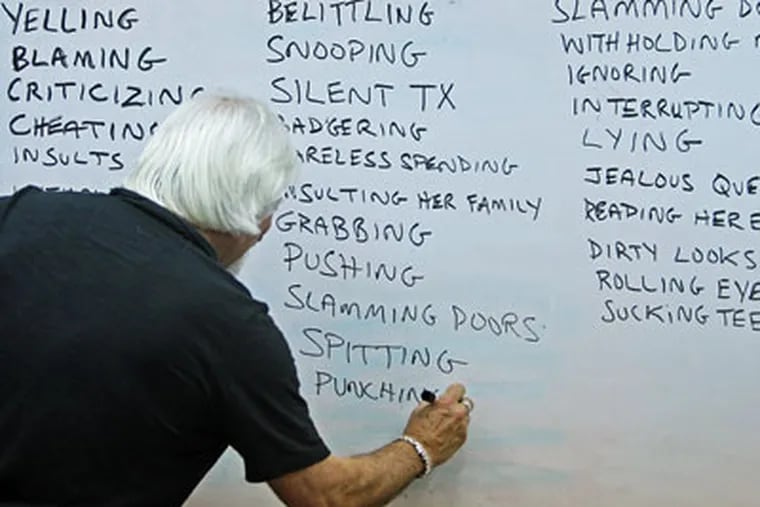 YELLING
BLAMING
CRITICIZING
CHEATING
INSULTS
BELITTLING
SNOOPING
SILENT TX
BADGERING
CARELESS SPENDING
INSULTING HER FAMILY
GRABBING
PUSHING
SLAMMING DOORS
SPITTING
PUNCHIN
SLAMMING
WITHHOLDING
IGNORING
INTERRUPTING
LYING
JEALOUS QUE
READING HER E
DIRTY LOOKS
ROLLING EYE
SUCKING TEE